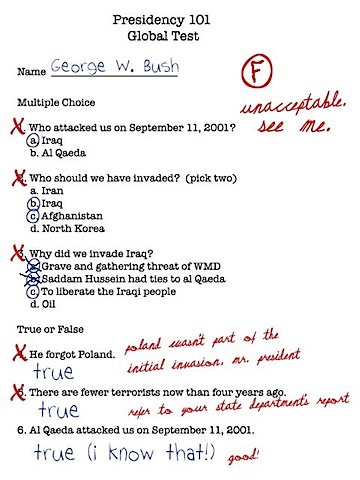 Presidency 101
Global Test
Name George W. Bush
F
unacceptable.
see me.
Multiple Choice
1. Who attacked us on September 11, 2001?
a. Iraq
b. Al Qaeda
2. Who should we have invaded? (pick two)
a. Iran
b. Iraq
c. Afghanistan
d. North Korea
3. Why did we invade Iraq?
a. Grave and gathering threat of WMD
b. Saddam Hussein had ties to al Qaeda
c. To liberate the Iraqi people
d. Oil
True or False
4. He forgot Poland.
true
poland wasn't part of the
initial invasion, mr. president
5. There are fewer terrorists now than four years ago.
true
refer to your state department's report
6. Al Qaeda attacked us on September 11, 2001.
true (i know that!)
good!